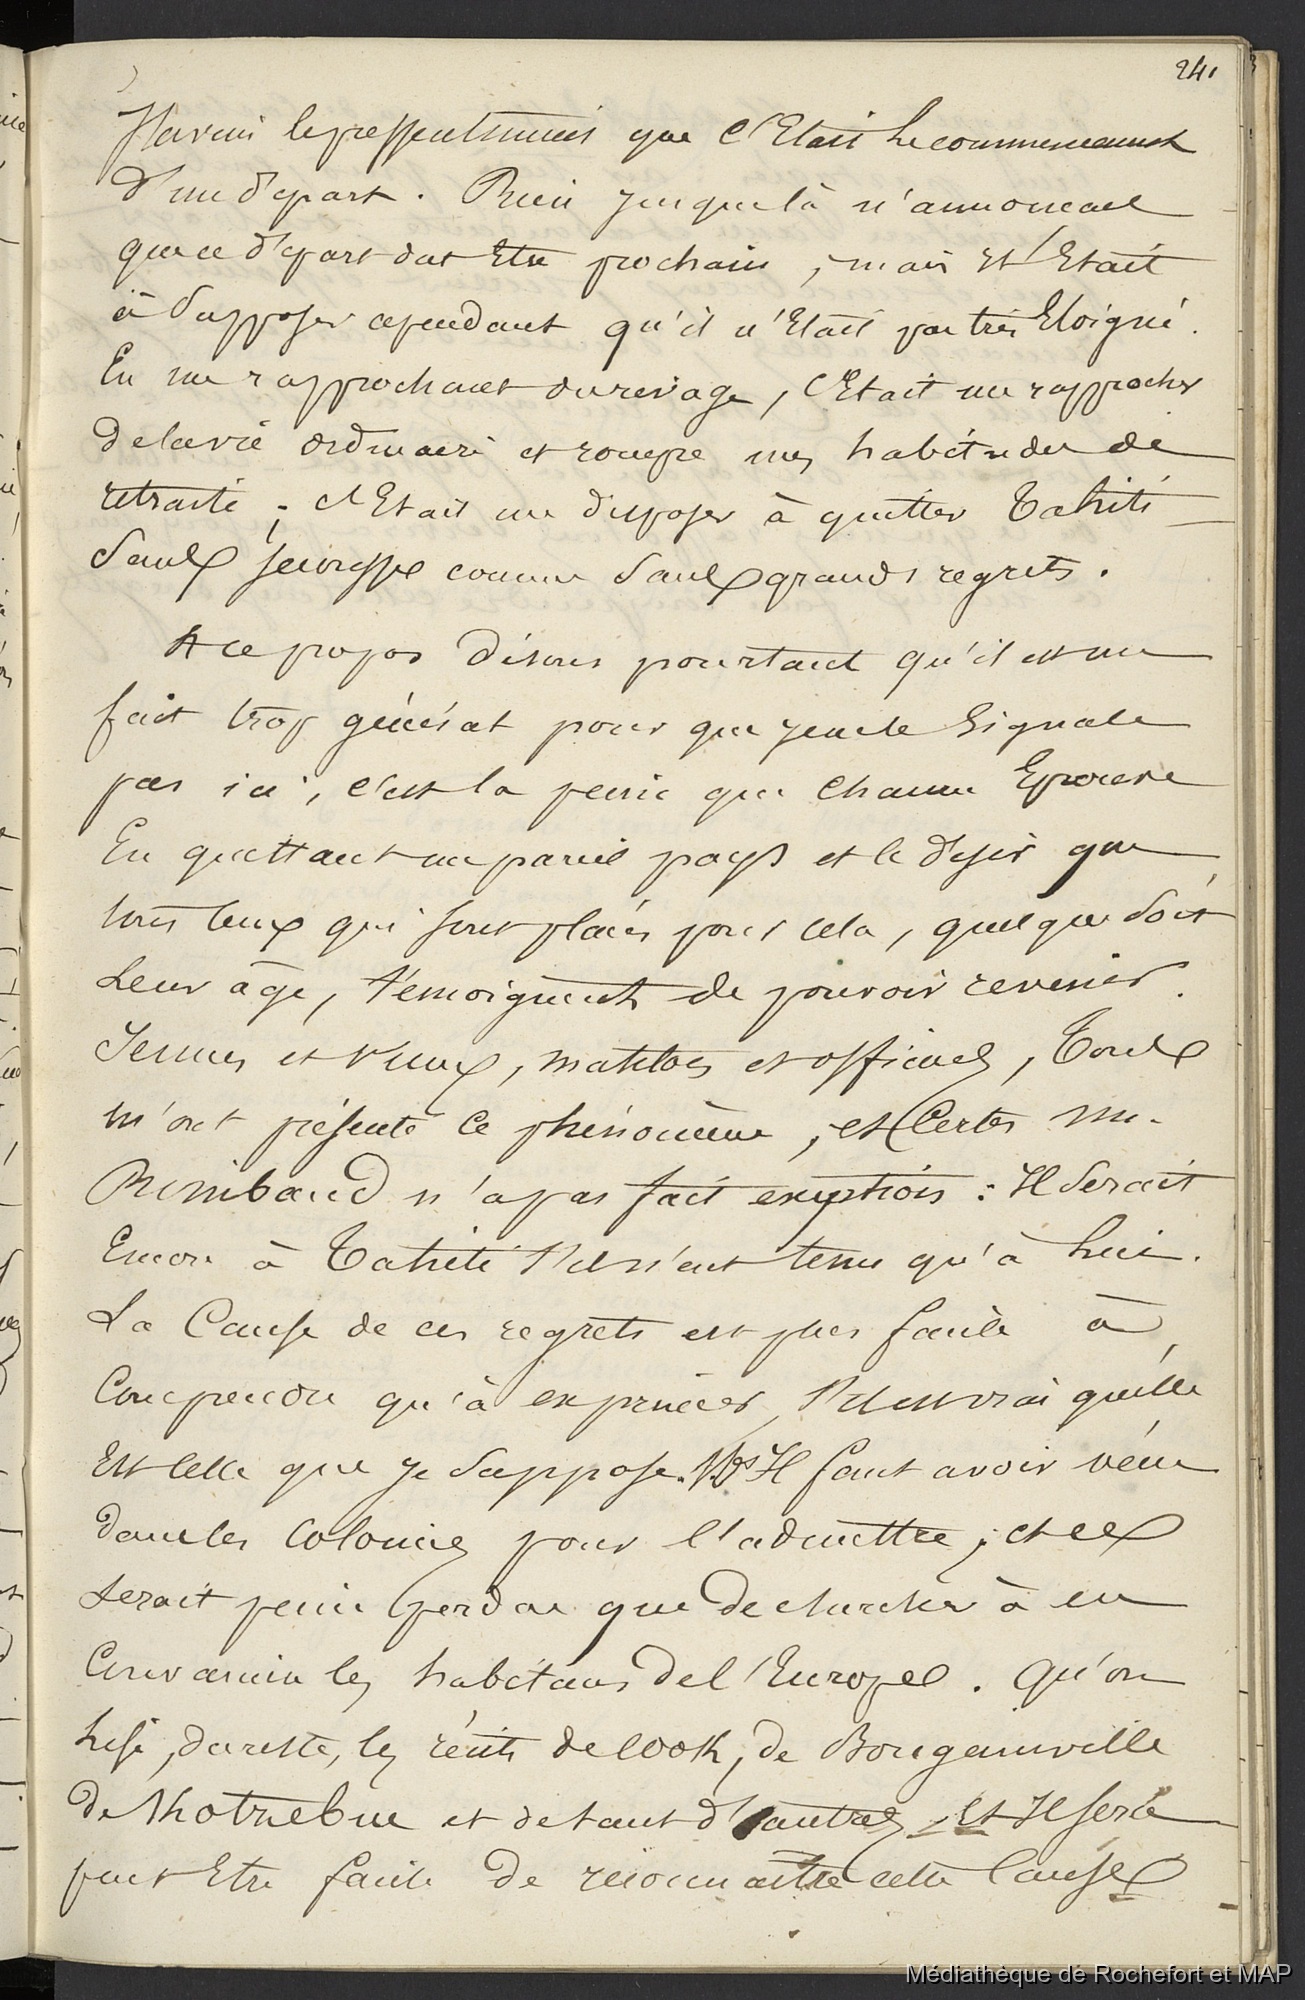 241
J'avais le pressentiment que c'Etait le commencement
d'un départ. Rien jusque là n'annoncait
que ce départ dut Etre prochain, mais c'Etait
à supposer cependant qu'il n'Etait pas très Eloigné.
En me rapprochant du rivage, c'Etait me rapprocher
de la vie ordinaire et rompre mes habitudes de
retraite; c'Etait me disposer à quitter Tahiti
sans secousse comme sans grands regrets.
A ce propos disons pourtant qu'il est un
fait trop général pour que je ne le signale
pas ici, c'est la peine que chacun Eprouve
En quittant un pareil pays et le désir que
tous ceux qui sont placés pour cela, quelque soit
leur âge, témoignent de pouvoir revenir.
Jeunes et vieux, matelots et officiers, Tous
m'ont présenté ce phénomène, et Certes Mr.
Rimbaud n'a pas fait exception: Il serait
Encore à Tahiti s'il n'eut tenu qu'à lui.
La Cause de ces regrets est plus facile à
Comprendre qu'à exprimer, s'il est vrai qu'elle
Est celle que je suppose. Il faut avoir vécu
dans les Colonies pour l'admettre; et ce
serait peine perdue que de chercher à en
Convaincre les habitans de l'Europe. Qu'on
lise, du reste, les récits de Cook, de Bougainville
de Khotzebue et de tant d'autres, et Il sera
peut Etre facile de reconnaitre cette Cause
Médiathèque de Rochefort et MAP